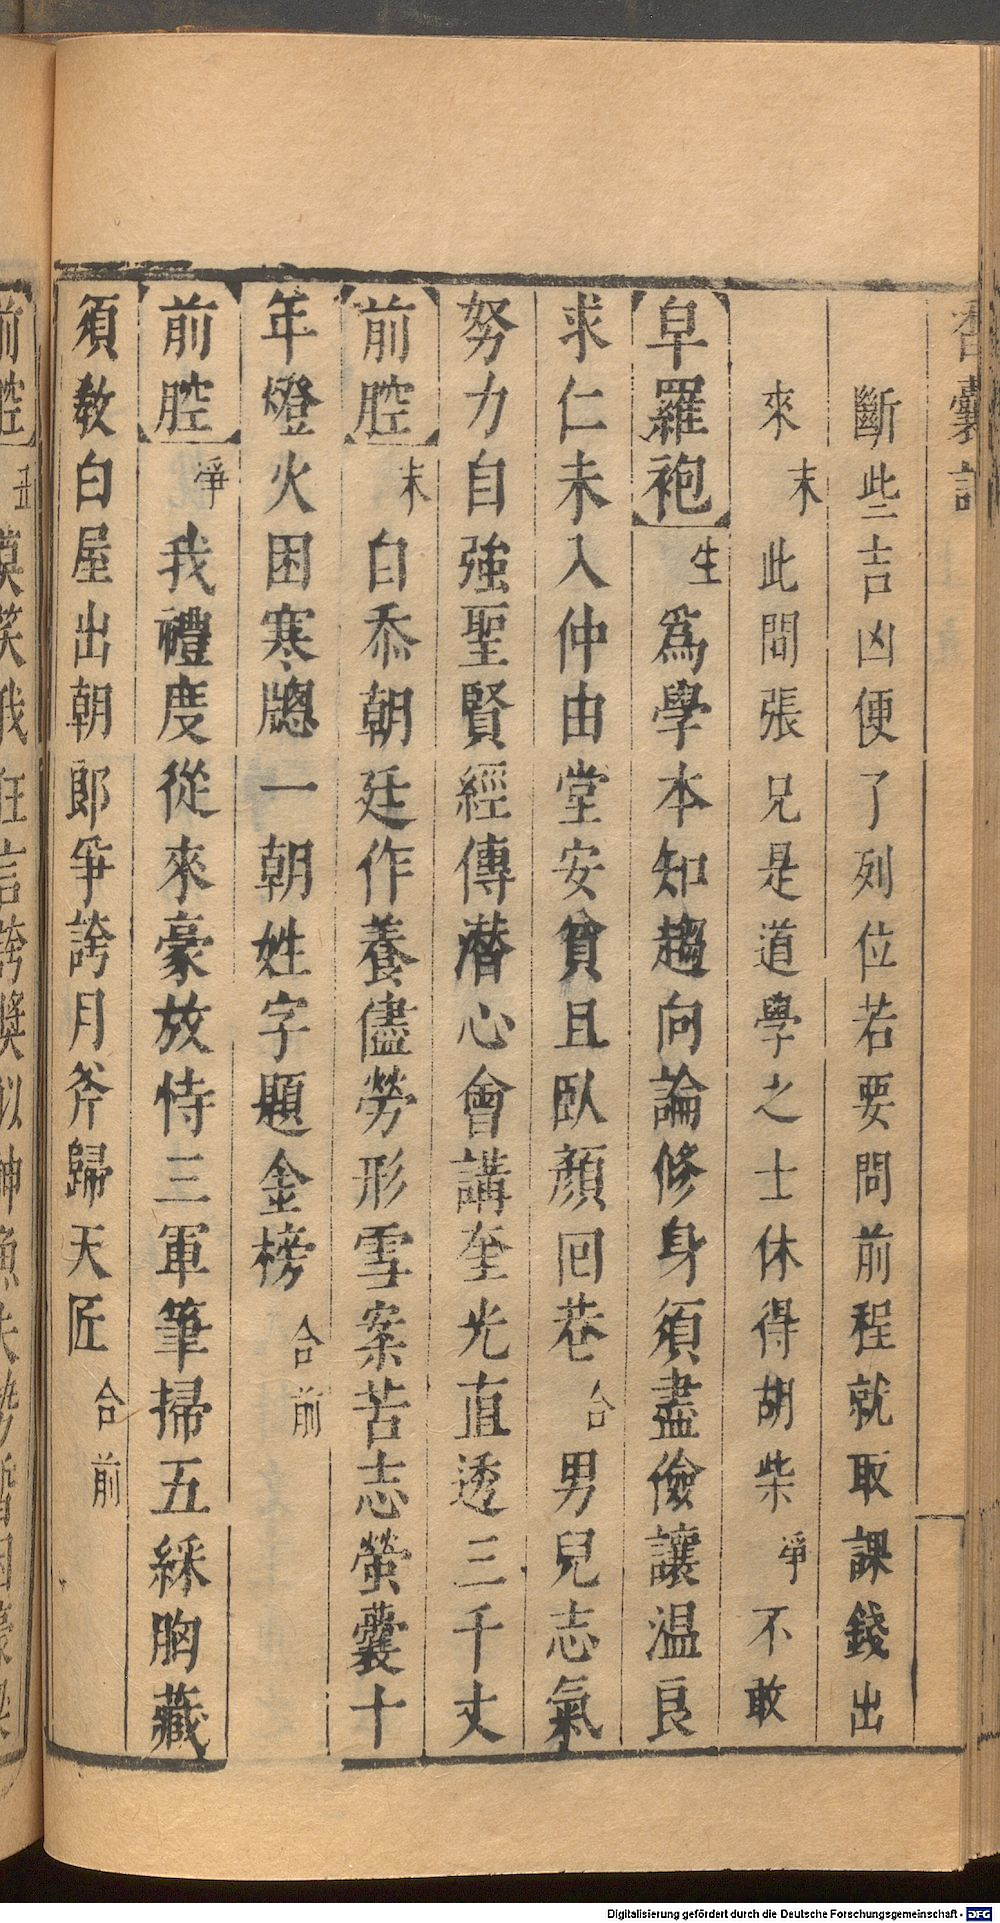 香囊記
斷些吉凶便了列位若要問前程就取課錢出
來末此間張兄是道學之士休得胡柴淨不敢
皁羅袍生爲學本知趨向論修身須盡儉讓温良
求仁未入仲由堂安貧且臥顏回巷合男兒志氣
努力自強聖賢經傳潜心會講奎光直透三千丈
前腔末自忝朝廷作養儘勞形雪案苦志螢囊十
年燈火困寒牕一朝姓字題金榜合前
前腔淨我禮度從來豪放恃三軍筆掃五綵胸藏
須教白屋出朝郎爭誇月斧歸天匠合前
前腔丑莫笑我狂言誇獎似神
Digitalisierung gefördert durch die Deutsche Forschungsgemeinschaft - DFG